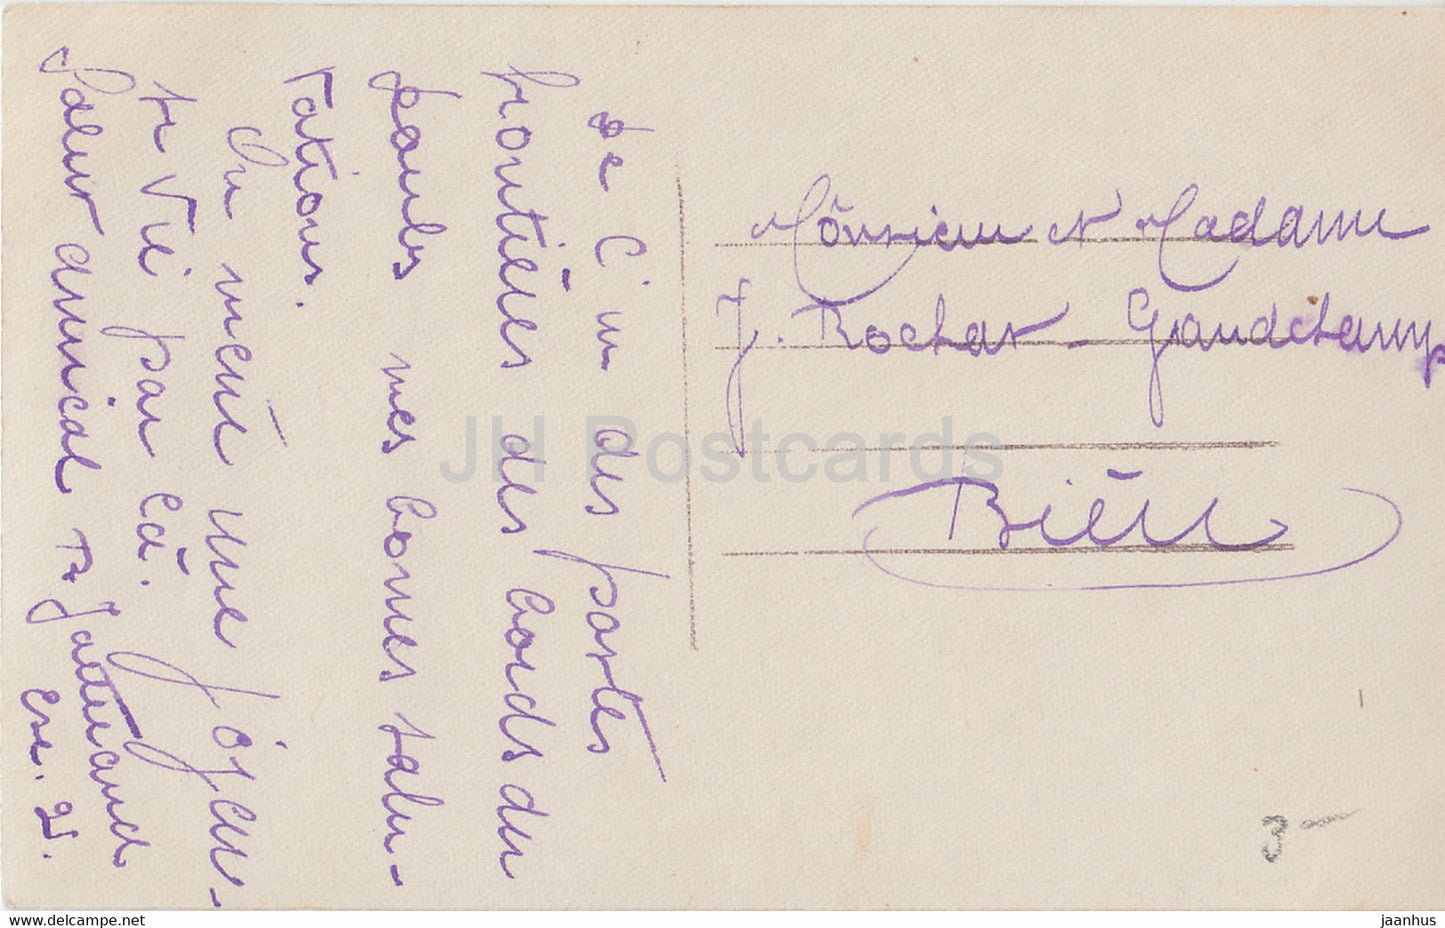 De l'un des postes
frontières des bords du
Doubs mes bonnes salu-
tations.
On mène une joyeu-
se vie par là.
Salut amical
Monsieur et Madame
J. Rochat - Grandchamp
Bienne
3-
JH Postcards
www.delcampe.net
jaanhus